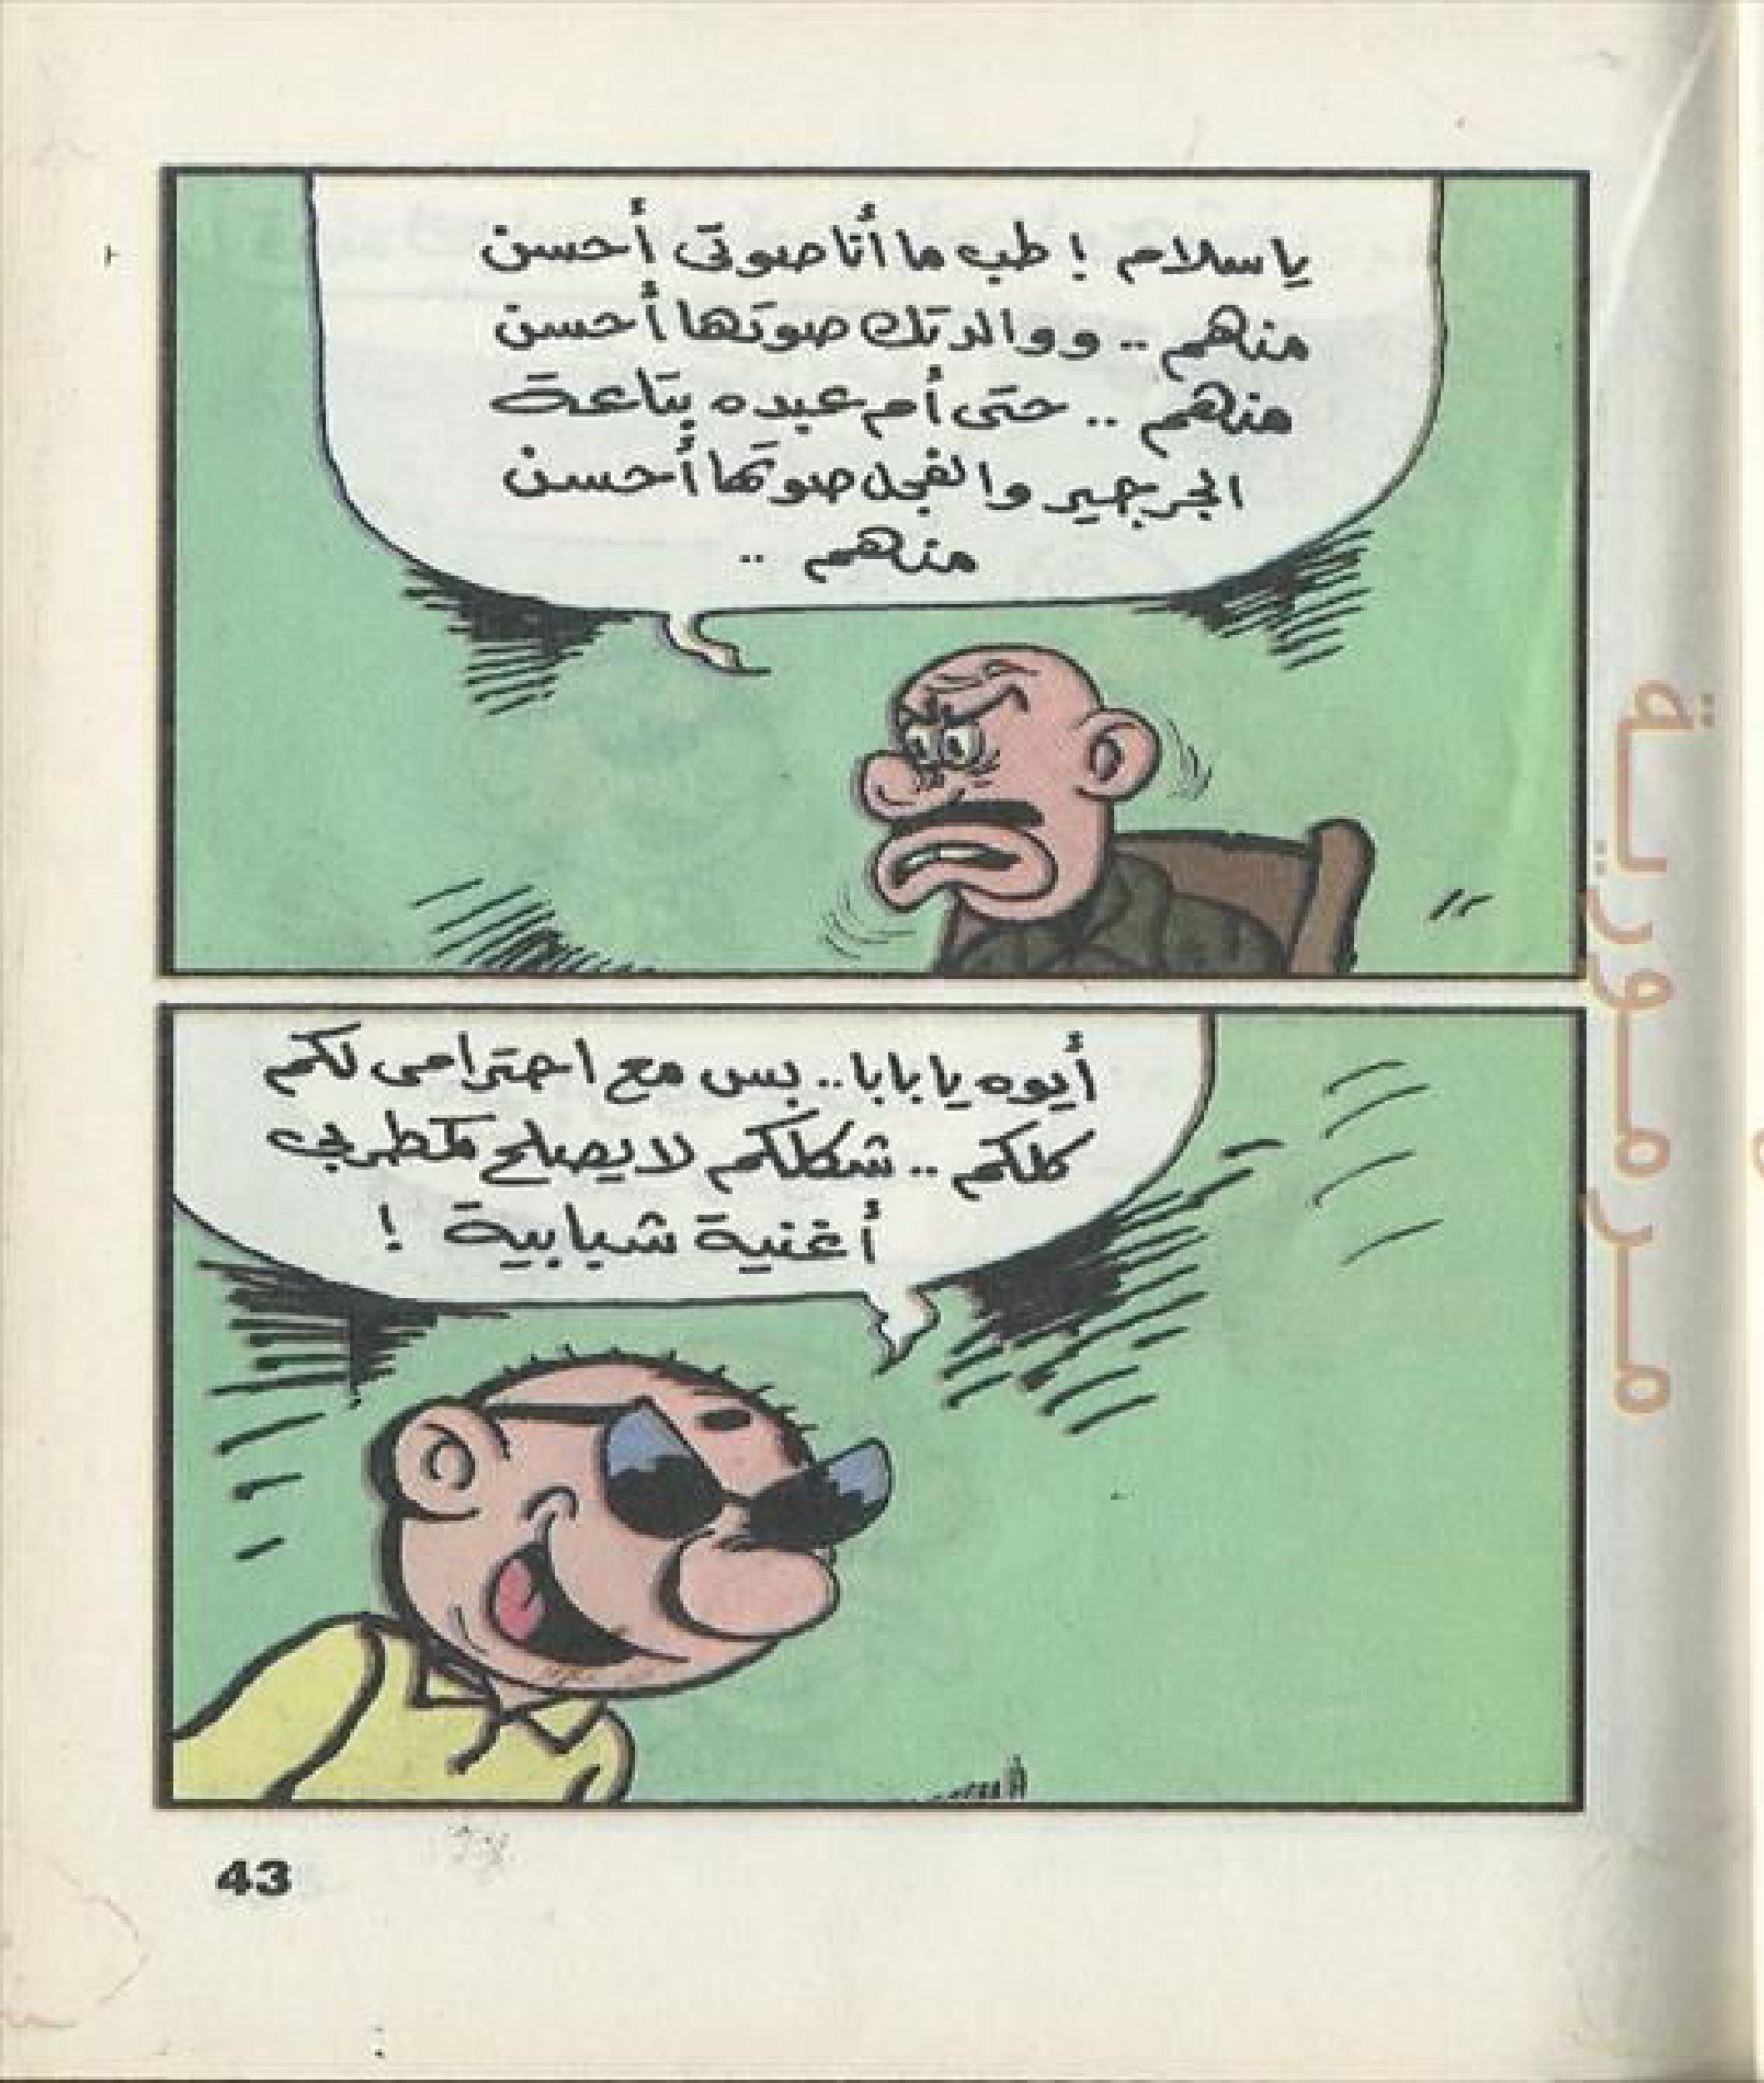 ياسلام ! طب ما أنا صوتى أحسن
منهم .. ووالدتك صوتها أحسن
منهم .. حتى أم عبده بتاعة
الجرجير والفجل صوتها أحسن
منهم ..
أيوه يا بابا.. بس مع احترامى لكم
كلكم .. شكلكم لا يصلح لمطربى
أغنية شبابية !
43
مرمورية